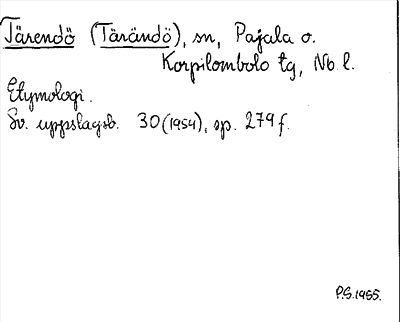 Tärendö (Tärändö), sn, Pajala o.
Korpilombolo tg, Nb. l.
Etymologi.
Sv. uppslagsb. 30 (1954), sp. 279 f.
P.S. 1955.